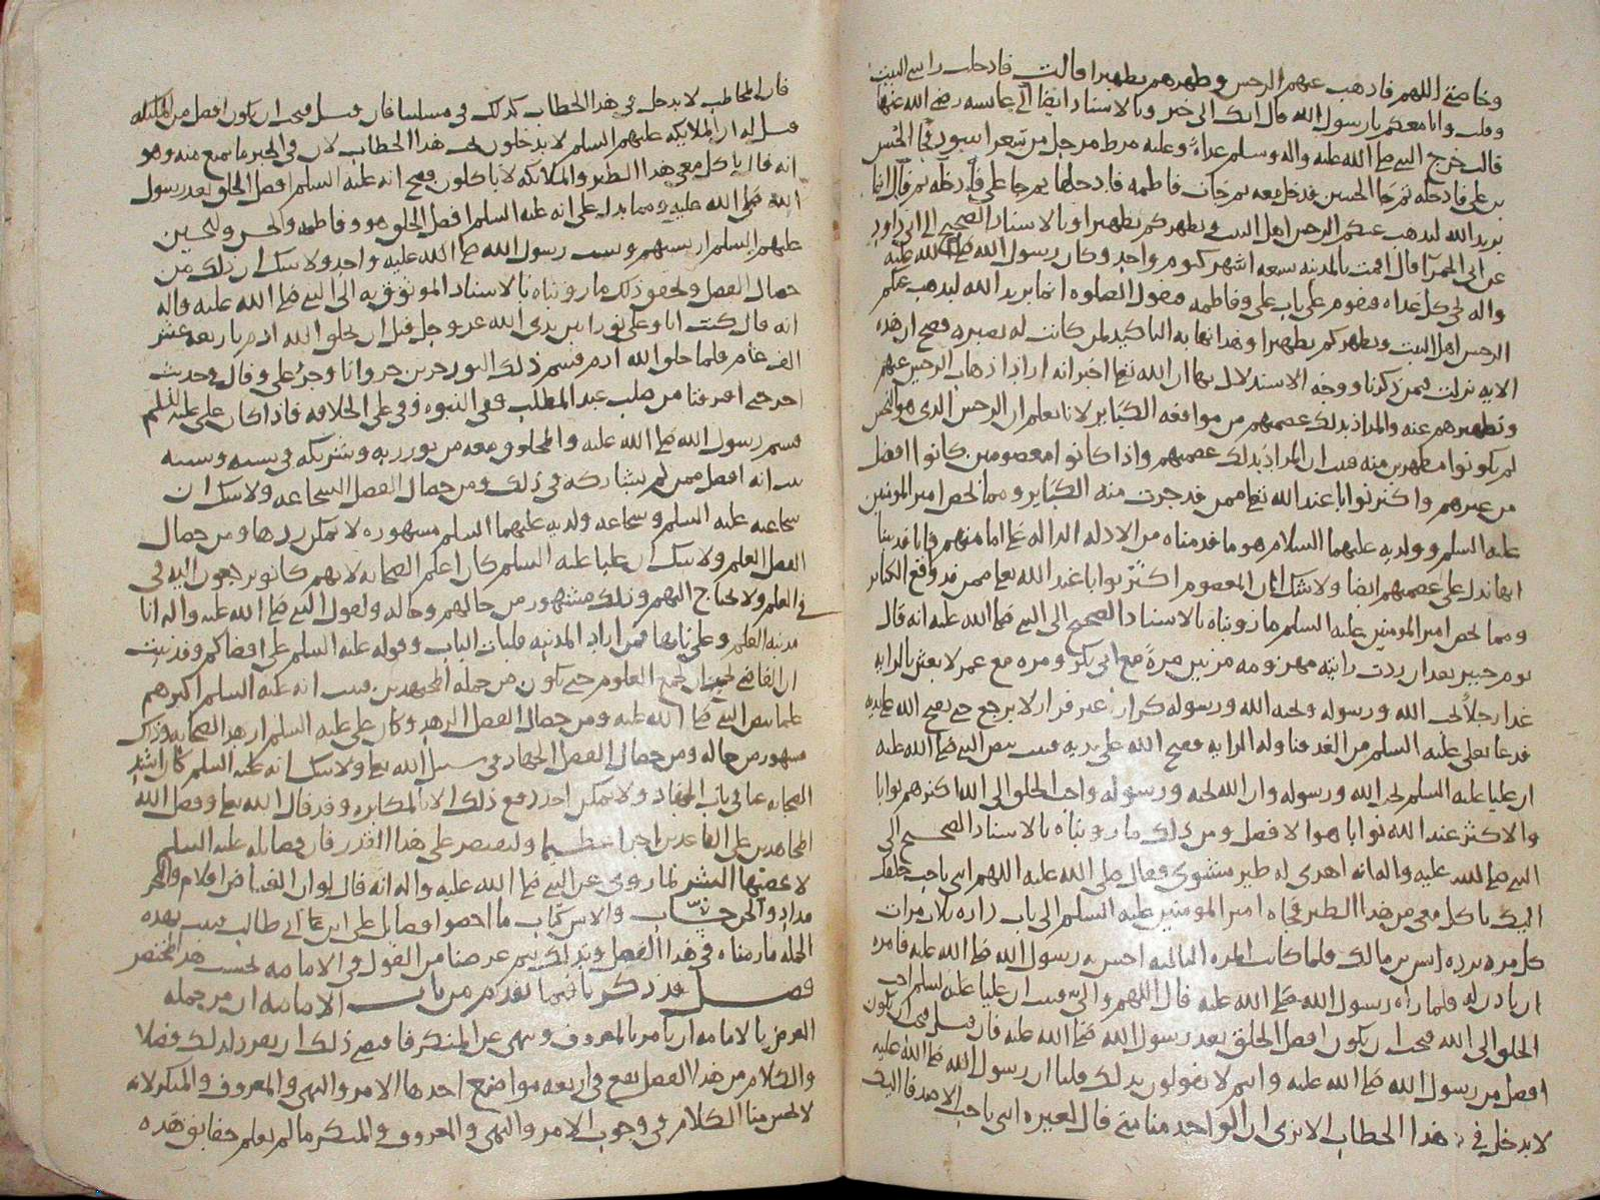 وخاصتي اللهم فاذهب عنهم الرجس وطهرهم تطهيرا قالت فادخلت راسي البيت
وقلت وانا معكم يا رسول الله قال انك الى خير وبالاسناد ايضا الى عايشه رضي الله عنها
قالت خرج النبي صلى الله عليه واله وسلم غداة وعليه مرط مرجل من شعر اسود فجا الحسن
بن علي فادخله ثم جا الحسين فدخل معه ثم جات فاطمه فادخلها ثم جا علي فادخله ثم قال انما
يريد الله ليذهب عنكم الرجس اهل البيت ويطهركم تطهيرا وبالاسناد الصحيح الى ابي داود
عن ابي الحمرآ قال اقمت بالمدينه سبعه اشهر كيوم واحد وكان رسول الله صلى الله عليه
واله يجي كل غداه فيقوم على باب علي وفاطمه فيقول الصلوه انما يريد الله ليذهب عنكم
الرجس اهل البيت ويطهركم تطهيرا وهذا نهايه التاكيد لمن كانت له بصيره فصح ان هذه
الايه نزلت فيمن ذكرنا ووجه الاستدلال بها ان الله تعالى اخبر انه اراد اذهاب الرجس عنهم
وتطهيرهم عنه والمراد بذلك عصمتهم من مواقعه الكباير لانا نعلم ان الرجس الذي هو النجس
لم يكونوا مطهرين منه فثبت ان المراد بذلك عصمتهم واذا كانوا معصومين كانوا افضل
من غيرهم واكثر ثوابا عند الله تعالى ممن قد جرت منه الكباير ومما يخص امير المومنين
عليه السلم وولديه عليهما السلام هو ما قدمناه من الادله الداله على امامتهم فانا قد بينا
انها تدل على عصمتهم ايضا ولا شك ان المعصوم اكثر ثوابا عند الله تعالى ممن قد واقع الكباير
ومما يخص امير المومنين عليه السلم ما رويناه بالاسناد الصحيح الى النبي صلى الله عليه انه قال
يوم خيبر بعد ان ردت رايته مهزومه مرتين مرة مع ابي بكر ومره مع عمر لابعثن بالرايه
غدا رجلا يحب الله ورسوله ويحبه الله ورسوله كرار غير فرار لا يرجع حتى يفتح الله على يديه
فدعا بعلي عليه السلم من الغد فناوله الرايه ففتح الله على يديه فثبت بنص النبي صلى الله عليه
ان عليا عليه السلم يحب الله ورسوله وان الله يحبه ورسوله واحب الخلق الى الله اكثرهم ثوابا
والاكثر عند الله ثوابا هو الافضل ومن ذلك ما رويناه بالاسناد الصحيح الى
النبي صلى الله عليه واله انه اهدي له طير مشوي فقال صلى الله عليه اللهم ايتني باحب خلقك
اليك ياكل معي من هذا الطير فجاه امير المومنين عليه السلم الى باب داره ثلاث مرات
كل مره يرده انس بن مالك فلما كانت المره الثالثه احس به رسول الله صلى الله عليه فامره
ان ياذن له فلما راه رسول الله صلى الله عليه قال اللهم والي فثبت ان عليا عليه السلم احب
الخلق الى الله فيجب ان يكون افضل الخلق بعد رسول الله صلى الله عليه فان قيل فيجب ان يكون
افضل من رسول الله صلى الله عليه وانتم لا تقولون بذلك قلنا ان رسول الله صلى الله عليه
لا يدخل في هذا الخطاب الا ترى ان الواحد منا متى قال لغيره ايتني باحب الاصدقا اليك
فان المخاطب لا يدخل في هذا الخطاب كذلك في مسلتنا فان قيل فيجب ان يكون افضل من الملئكه
قيل له ان الملايكه عليهم السلم لا يدخلون تحت هذا الخطاب لان في الخبر ما يمنع منه وهو
انه قال ياكل معي هذا الطير والملائكه لا ياكلون فصح انه عليه السلم افضل الخلق بعد رسول
الله صلى الله عليه ومما يدل على انه عليه السلم افضل الخلق هو وفاطمه والحسن والحسين
عليهم السلم ان نسبهم ونسب رسول الله صلى الله عليه واحد ولا شك ان ذلك من
خصال الفضل ويحقق ذلك ما رويناه بالاسناد الموثوق به الى النبي صلى الله عليه واله
انه قال كنت انا وعلي نورا بين يدي الله عز وجل قبل ان يخلق الله ادم باربعه عشر
الف عام فلما خلق الله ادم قسم ذلك النور جزين جزو انا وجزء علي وفي حديث
اخر حتى افترقنا من صلب عبد المطلب ففي النبوه وفي علي الخلافه فاذا كان علي عليه السلم
قسم رسول الله صلى الله عليه والمخلوق معه من نور ربه وشريكه في نسبه وسببه
ثبت انه افضل ممن لم يشاركه في ذلك ومن خصال الفضل الشجاعه ولا شك ان
شجاعته عليه السلم وشجاعه ولديه عليهما السلم مشهوره لا يمكن ردها ومن خصال
الفضل العلم ولا شك ان عليا عليه السلم كان اعلم الصحابه لانهم كانوا يرجعون اليه في
العلم ولا يحتاج اليهم وذلك مشهور من حالهم وحاله ولقول النبي صلى الله عليه واله انا
مدينه العلم وعلي بابها فمن اراد المدينه فليات الباب وقوله عليه السلم علي اقضاكم وقد ثبت
ان القاضي يحتاج الى جميع العلوم حتى يكون من جمله المجتهدين فثبت انه عليه السلم اكثرهم
علما بنص النبي صلى الله عليه ومن خصال الفضل الزهد وكان علي عليه السلم ازهد الصحابه وذلك
مشهور من حاله ومن خصال الفضل الجهاد في سبيل الله تعالى ولا شك انه عليه السلم كان اشد
الصحابه عنا في باب الجهاد ولا يمكن احد دفع ذلك الا بالمكابره وقد قال الله تعالى وفضل الله
المجاهدين على القاعدين اجرا عظيما ولنقتصر على هذا القدر فان فضايله عليه السلم
لا يحصيها البشر لما روي عن النبي صلى الله عليه واله انه قال لو ان الغياض اقلام والبحر
مداد والجن حساب والانس كتاب ما احصوا فضايل علي ابن ابي طالب فثبت بهذه
الجمله ما رمناه في هذا الفصل وبذلك يتم غرضنا من القول في الامامه بحسب هذا المختصر
فصل قد ذكرنا فيما تقدم من باب الامامه ان من جمله
الغرض بالامامه ان يامر بالمعروف وينهى عن المنكر فاقتضى ذلك ان يفرد لذلك فصلا
والكلام من هذا الفصل يقع في اربعه مواضع احدها الامر والنهي والمعروف والمنكر لانه
لا يحسن منا الكلام في وجوب الامر والنهي والمعروف والمنكر ما لم نعلم حقايق هذه